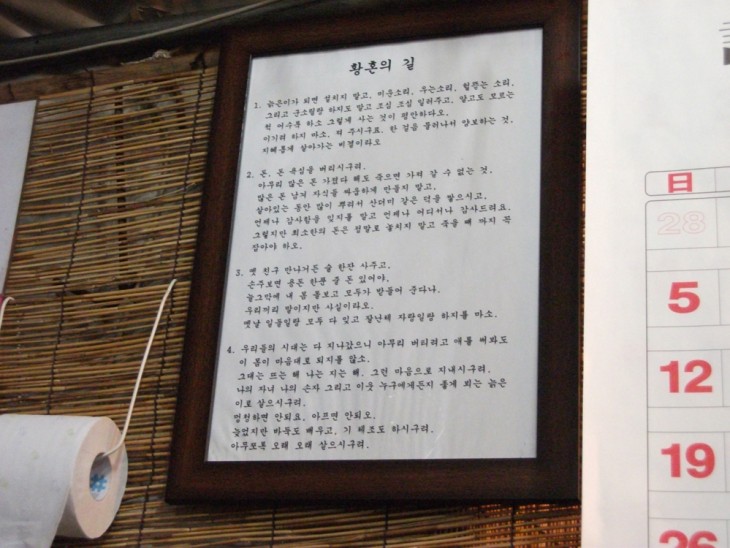 황혼의 길
1. 늙은이가 되면 설치지 말고, 미운소리, 우는소리, 헐뜯는 소리,
그리고 군소릴랑 하지도 말고 조심 조심 일러주고, 알고도 모르는
척 어수룩 하소 그렇게 사는 것이 평안하다오.
이기려 하지 마소. 져 주시구료. 한 걸음 물러나서 양보하는 것,
지혜롭게 살아가는 비결이라오
2. 돈, 돈 욕심을 버리시구려.
아무리 많은 돈 가졌다 해도 죽으면 가져 갈 수 없는 것,
많은 돈 남겨 자식들 싸움하게 만들지 말고,
살아있는 동안 많이 뿌려서 산더미 같은 덕을 쌓으시고,
언제나 감사함을 잊지를 말고 언제나 어디서나 감사드려요.
그렇지만 최소한의 돈은 정말로 놓치지 말고 죽을 때 까지 꼭
잡아야 하오.
3. 옛 친구 만나거든 술 한잔 사주고,
손주보면 용돈 한푼 줄 돈 있어야,
늘그막에 내 몸 돌보고 모두가 받들어 준다나.
우리끼리 말이지만 사실이라오.
옛날 일들일랑 모두 다 잊고 잘난체 자랑일랑 하지를 마소.
4. 우리들의 시대는 다 지나갔으니 아무리 버티려고 애를 써봐도
이 몸이 마음대로 되지를 않소.
그대는 뜨는 해 나는 지는 해. 그런 마음으로 지내시구려.
나의 자녀 나의 손자 그리고 이웃 누구에게든지 좋게 뵈는 늙은
이로 살으시구려.
멍청하면 안되요, 아프면 안되오.
늙었지만 바둑도 배우고, 기 체조도 하시구려.
아무쪼록 오래 오래 살으시구려.
日
28
5
12
19
26